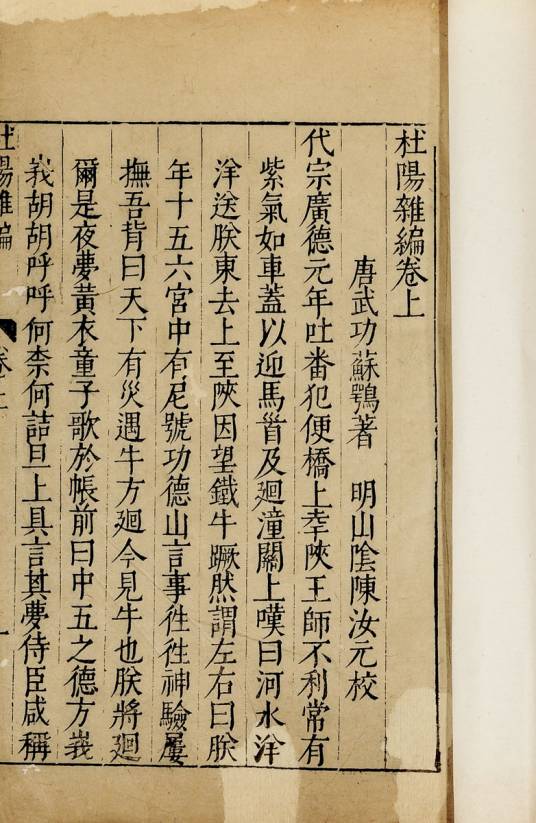 杜陽雜編卷上
唐武功蘇鶚著　明山陰陳汝元校
代宗廣德元年吐番犯便橋上幸陝王師不利常有
紫氣如車蓋以迎馬首及廻潼關上嘆曰河水洋
洋送朕東去上至陝因望鐵牛蹶然謂左右曰朕
年十五六宮中有尼號功德山言事徃徃神驗屢
撫吾背曰天下有災遇牛方廻今見牛也朕將廻
爾是夜夢黃衣童子歌於帳前曰中五之德方峩
峩胡胡呼呼何柰何詰旦上具言其夢侍臣咸稱
杜陽雜編　卷上　一